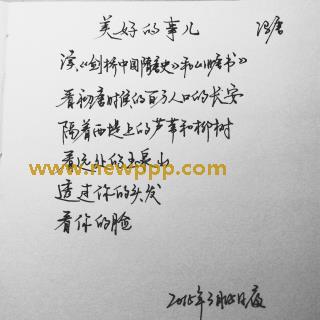 美好的事儿 冯唐
读《剑桥中国隋唐史》和《旧唐书》
看初唐时候的百万人口的长安
隔着西堤上的芦苇和柳树
看远处的玉泉山
www.newppp.com
透过你的头发
看你的脸
2015年3月15日夜